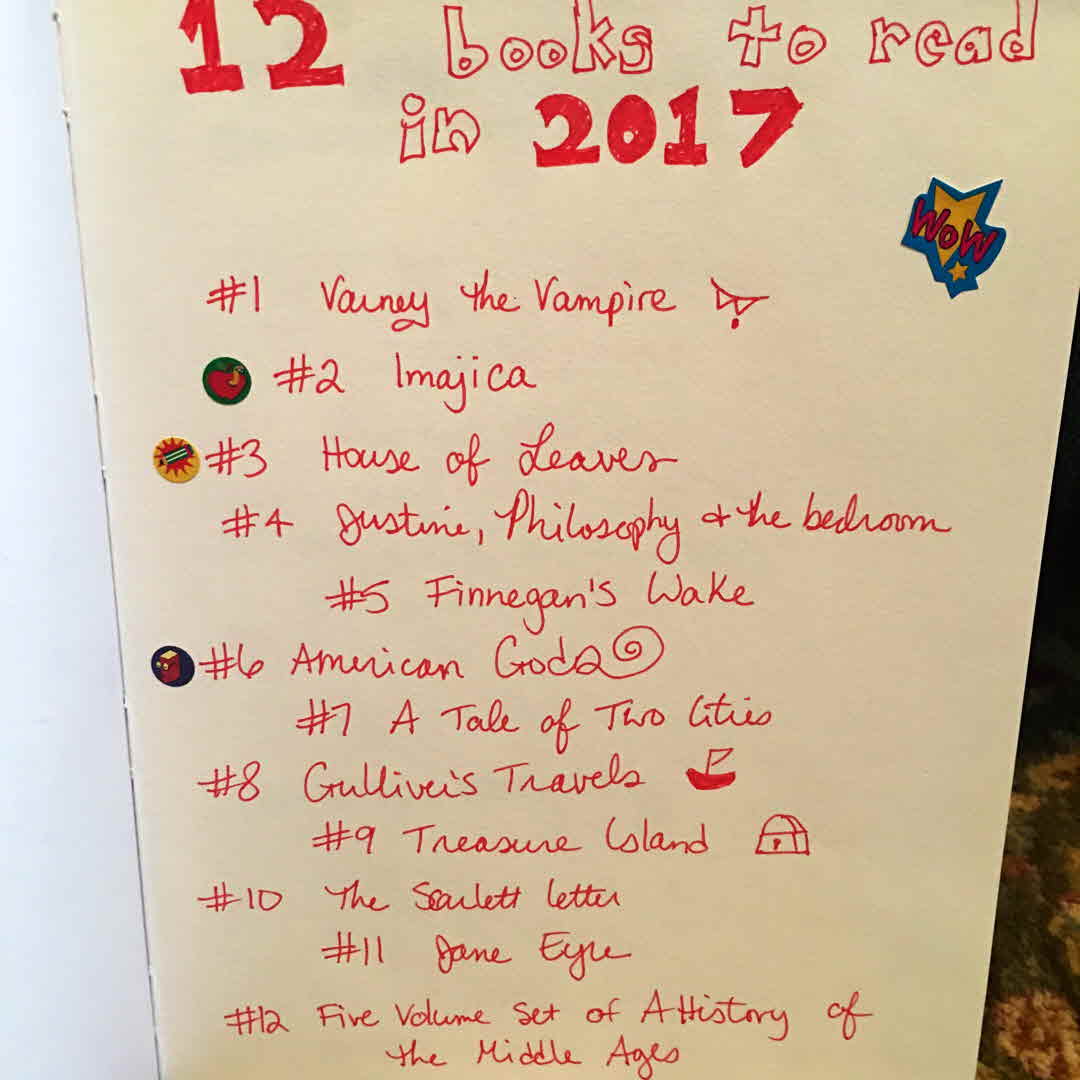 12 books to read
in 2017
WOW
#1 Varney the Vampire
#2 Imajica
#3 House of Leaves
#4 Justine, Philosophy & the bedroom
#5 Finnegan's Wake
#6 American Gods
#7 A Tale of Two Cities
#8 Gulliver's Travels
#9 Treasure Island
#10 The Scarlett letter
#11 Jane Eyre
#12 Five Volume Set of A History of
the Middle Ages